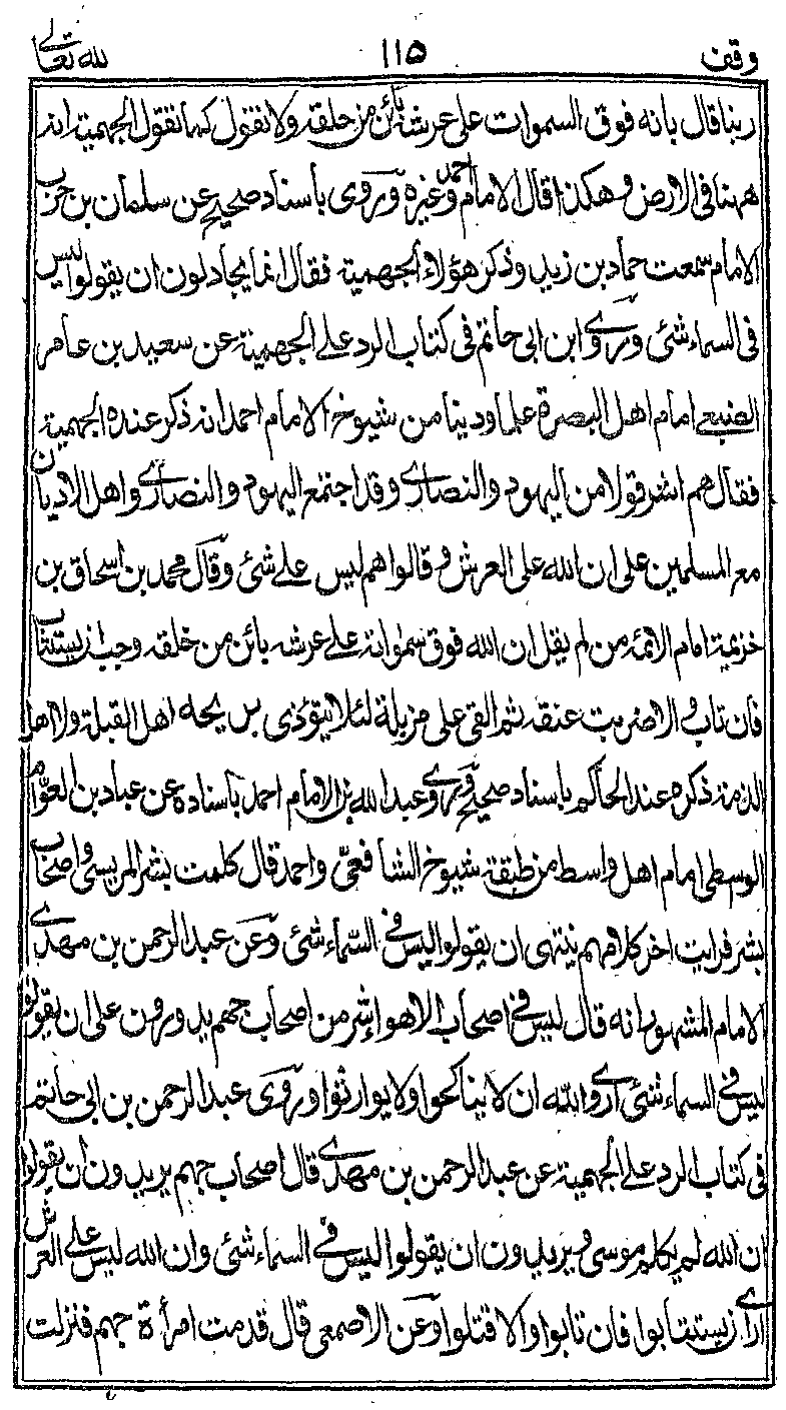 وقف ۱۱۵ لله تعالى
ربنا قال بانه فوق السموات على عرشه بائن من خلقه ولا نقول كما تقول الجهمية انه
ههنا فى الارض وهكذا قال الامام احمد وغيره وروى باسناد صحيح عن سلمان بن حرب
الامام سمعت حماد بن زيد وذكر هؤلاء الجهمية فقال انما يجادلون ان يقولوا ليس
فى السماء شئ وروى ابن ابى حاتم فى كتاب الرد على الجهمية عن سعيد بن عامر
الضبعى امام اهل البصرة علما ودينا من شيوخ الامام احمد انه ذكر عنده الجهمية
فقال هم اشر قولا من اليهود والنصارى وقد اجتمع اليهود والنصارى واهل الاديان
مع المسلمين على ان الله على العرش وقالوا هم ليس على شئ وقال محمد بن اسحاق بن
خزيمة امام الائمة من لم يقل ان الله فوق سموٰاته على عرشه بائن من خلقه وجب ان يستتاب
فان تاب والا ضربت عنقه ثم القى على مزبلة لئلا يتوذى بريحه اهل القبلة ولا اهل
الذمة ذكره عنه الحاكم باسناد صحيح وروى عبد الله بن الامام احمد باسناده عن عباد بن العوام
الوسطى امام اهل واسط من طبقة شيوخ الشافعى واحمد قال كلمت بشر المريسى واصحاب
بشر فرايت اخر كلامهم ينتهى ان يقولوا ليس فى السماء شئ وعن عبد الرحمن بن مهدى
الامام المشهور انه قال ليس فى اصحاب الاهواء اشر من اصحاب جهم يدورون على ان يقولوا
ليس فى السماء شئ ارى والله ان لا يناكحوا ولا يوارثوا وروى عبد الرحمن بن ابى حاتم
فى كتاب الرد على الجهمية عن عبد الرحمن بن مهدى قال اصحاب جهم يريدون ان يقولوا
ان الله لم يكلم موسى ويريدون ان يقولوا ليس فى السماء شئ وان الله ليس على العرش
ارى ان يستتابوا فان تابوا والا قتلوا وعن الاصمعى قال قدمت امرأة جهم فنزلت